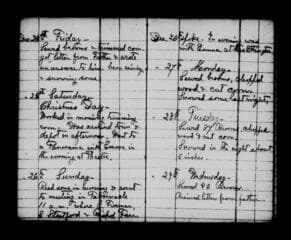 Dec 24th Friday
Sewed brooms & trimmed corn
got letter from Father & wrote
an answer to him been raining
& snowing some
25th Saturday
Christmas Day
Worked in morning trimming
corn. Was around town &
depot in afternoon. Went to
a Panorama with Emma in
the evening at Theatre.
26th Sunday
Read some in morning & went
to meeting in Tabernacle
11 a.m.
Dec 26 spoke. In evening was
with Emma at
27th Monday
Sewed brooms, chopped
wood & cut corn.
Snowed some last night.
28th Tuesday
Sewed 27 Brooms, chopped
& cut corn
Snowed in the night about
6 inches.
29th Wednesday
Sewed 40 Brooms.
Received letter from father